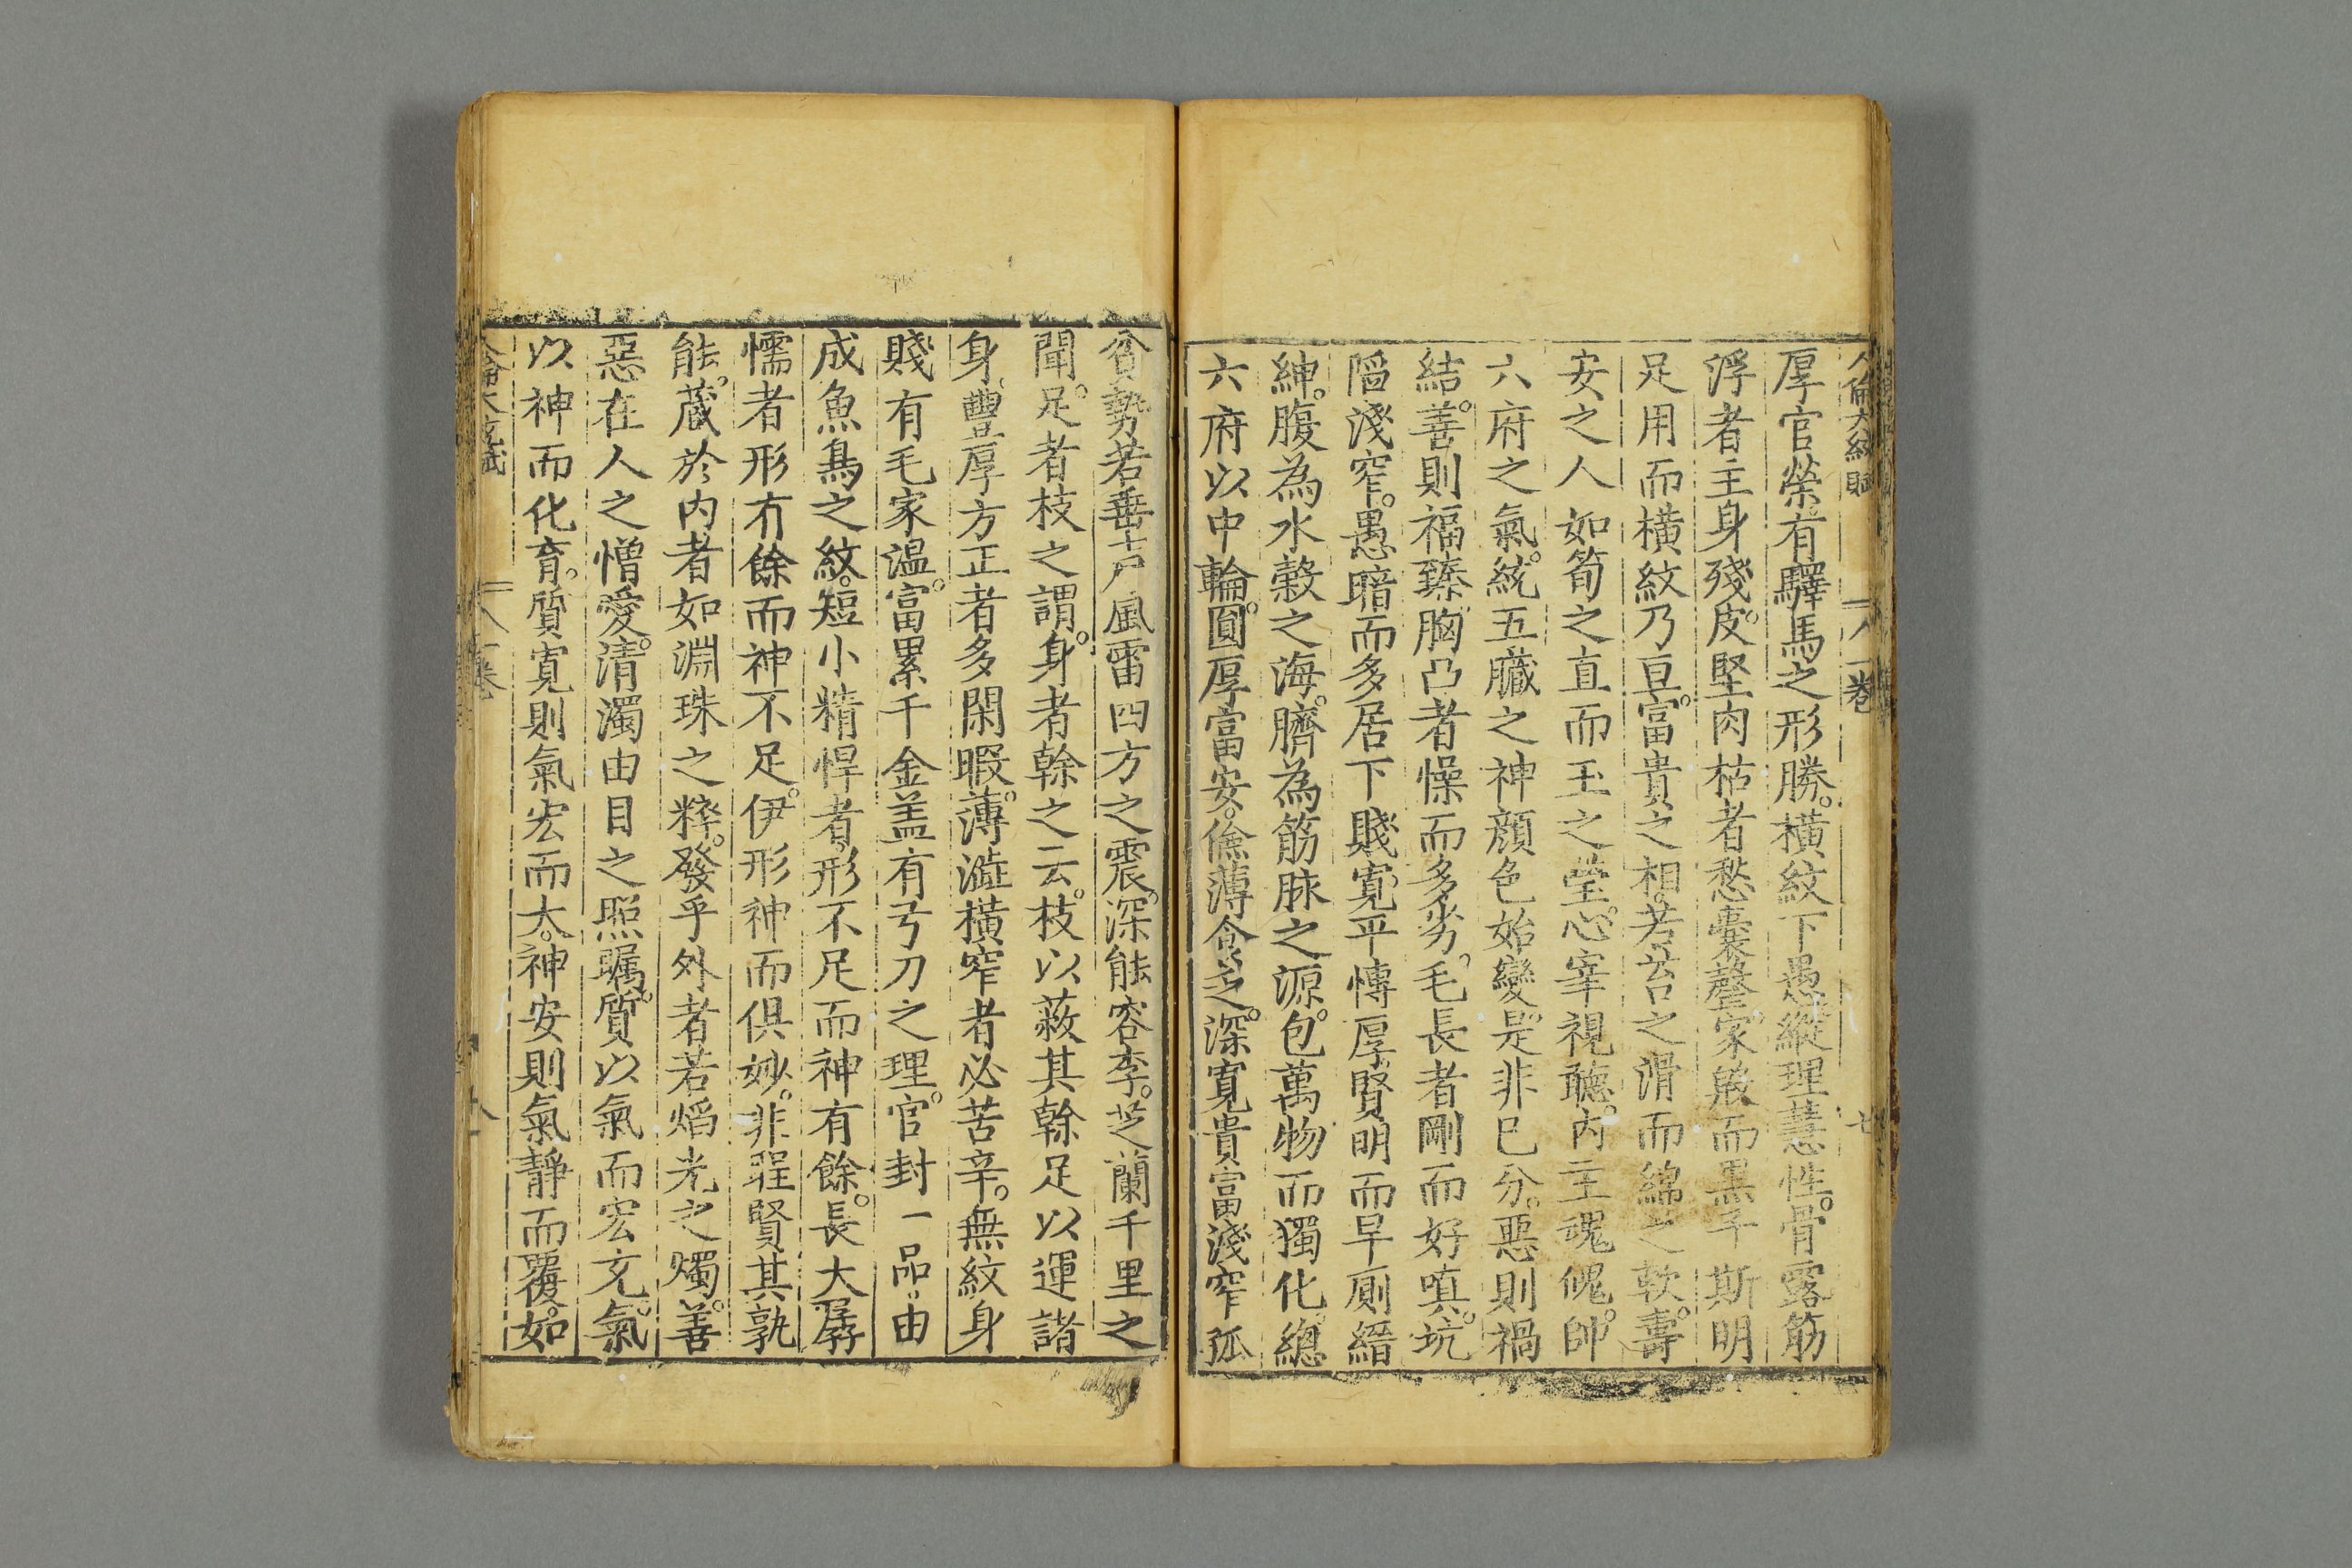 人倫大統賦 一卷 七
厚官榮有驛馬之形勝。橫紋下愚縱理慧性。骨露筋
浮者主身殘。皮堅肉枯者愁囊罄。家殷而黑子斯明
足用而橫紋乃亘。富貴之相。若苔之滑而綿之軟。壽
安之人如筍之直而玉之瑩。心宰視聽。內主魂魄。帥
六府之氣。統五臟之神顔色始變。是非已分。惡則禍
結。善則福臻。胸凸者懆而多劣。毛長者剛而好嗔。坑
陷淺窄。愚暗而多居下賤寬平愽厚賢明而早廁縉
紳。腹為水穀之海。臍為筋脉之源。包萬物而獨化。緫
六府以中輪。圓厚富安。儉薄貪乏。深寬貴富淺窄孤
貧勢若垂占戶風雷四方之震。深能容李。芝蘭千里之
聞。足者枝之謂。身者幹之云。枝以蔽其幹足以運諸
身。豐厚方正者多閑暇。薄澁橫窄者必苦辛。無紋身
賤有毛家溫。富累千金盖有弓刀之理。官封一品由
成魚鳥之紋。短小精悍者。形不足而神有餘。長大孱
懦者形有餘而神不足。伊形神而俱妙。非聖賢其孰
能。蔵於內者如淵珠之粹。發乎外者若焰光之燭。善
惡在人之憎愛。清濁由目之照矚。質以氣而宏充。氣
以神而化育。質寬則氣宏而大。神安則氣靜而覆。如
倫大統賦 一卷 八